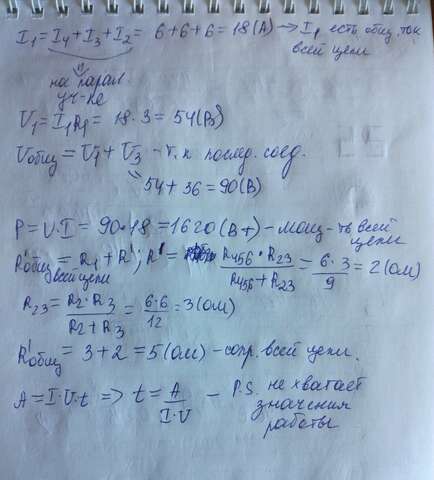 I₁ = I₄ + I₃ + I₂ = 6+6+6 = 18(А) → I₁ есть общ. ток
всей цепи
на парал.
уч-ке
V₁ = I₁R₁ = 18 · 3 = 54(В)
Vобщ = V₁ + V₃ – т.к послед. соед.
54 + 36 = 90(В)
P = U·I = 90·18 = 1620(Вт) – мощ-ть всей
цепи
R'общ = R₁ + R'; R' = R₄₅₆ · R₂₃ / R₄₅₆ + R₂₃ = 6·3 / 9 = 2(Ом)
всей цепи
R₂₃ = R₂·R₃ / R₂ + R₃ = 6·6 / 12 = 3(Ом)
R'общ = 3 + 2 = 5(Ом) – сопр. всей цепи.
A = I·U·t => t = A / I·U – P.S. не хватает
значения
работы